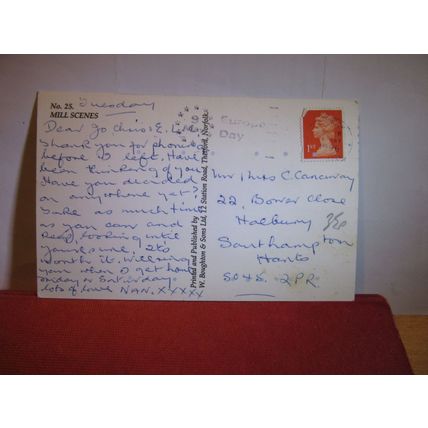 No. 25.
MILL SCENES
Tuesday
Dear Jo Chris & 
Thank you for phone
before I left. Have
been thinking of you
Have you decided
on anywhere yet?
Take as much time
as you can and
keep looking until
your sure, its
worth it. Will ring
you when I get home
Sunday or Saturday
lots of love NAN. XXXXX
Printed and Published by
W. Boughton & Sons Ltd, 12 Station Road, Thetford, Norfolk.
Europe
Day
1st
Mr & Mrs C. Canaway
22, Bower Close
Holbury
35p
Southampton
Hants
SO45 2PR.